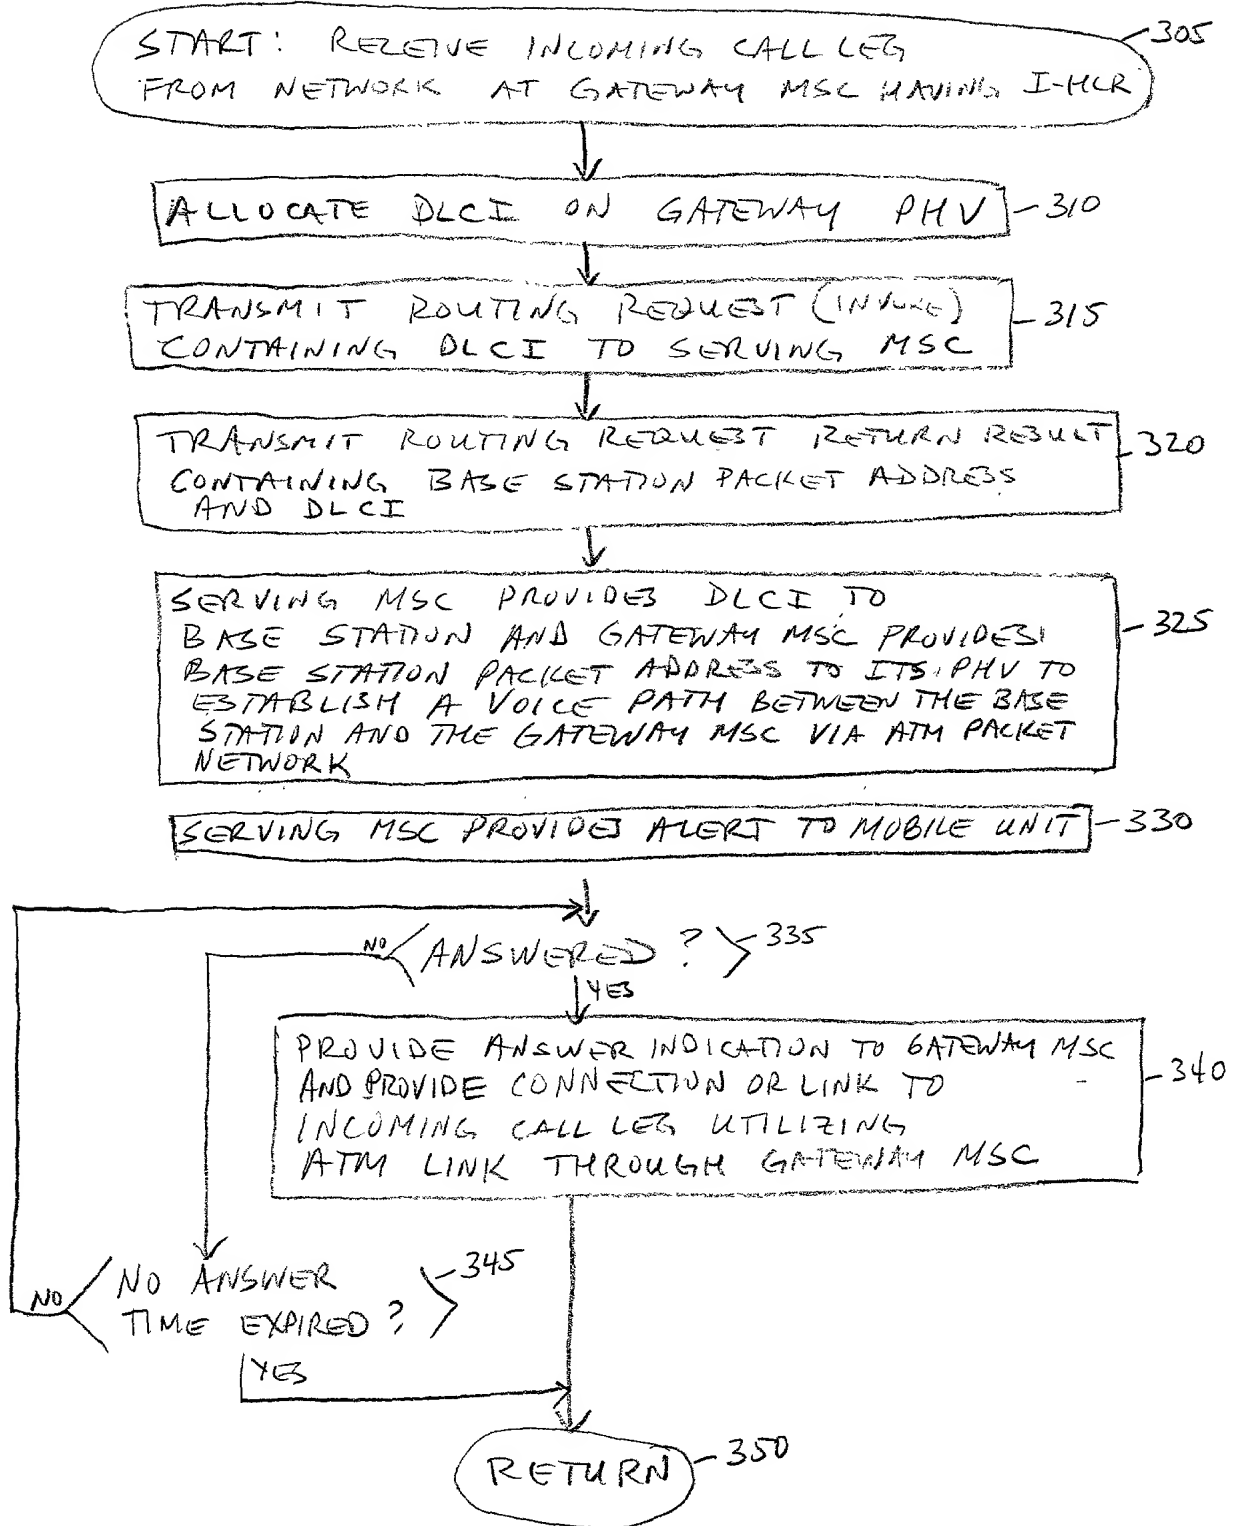 START: RECEIVE INCOMING CALL LEG
305
FROM NETWORK AT GATEWAY MSC HAVING I-HLR
ALLOCATE DLCI ON GATEWAY PHV
310
TRANSMIT ROUTING REQUEST (INVOKE)
315
CONTAINING DLCI TO SERVING MSC
TRANSMIT ROUTING REQUEST RETURN RESULT
320
CONTAINING BASE STATION PACKET ADDRESS
AND DLCI
SERVING MSC PROVIDES DLCI TO
BASE STATION AND GATEWAY MSC PROVIDES
325
BASE STATION PACKET ADDRESS TO ITS PHV TO
ESTABLISH A VOICE PATH BETWEEN THE BASE
STATION AND THE GATEWAY MSC VIA ATM PACKET
NETWORK
SERVING MSC PROVIDES ALERT TO MOBILE UNIT
330
NO
ANSWERED ?
335
YES
PROVIDE ANSWER INDICATION TO GATEWAY MSC
AND PROVIDE CONNECTION OR LINK TO
340
INCOMING CALL LEG UTILIZING
ATM LINK THROUGH GATEWAY MSC
NO ANSWER
345
NO
TIME EXPIRED ?
YES
RETURN
350